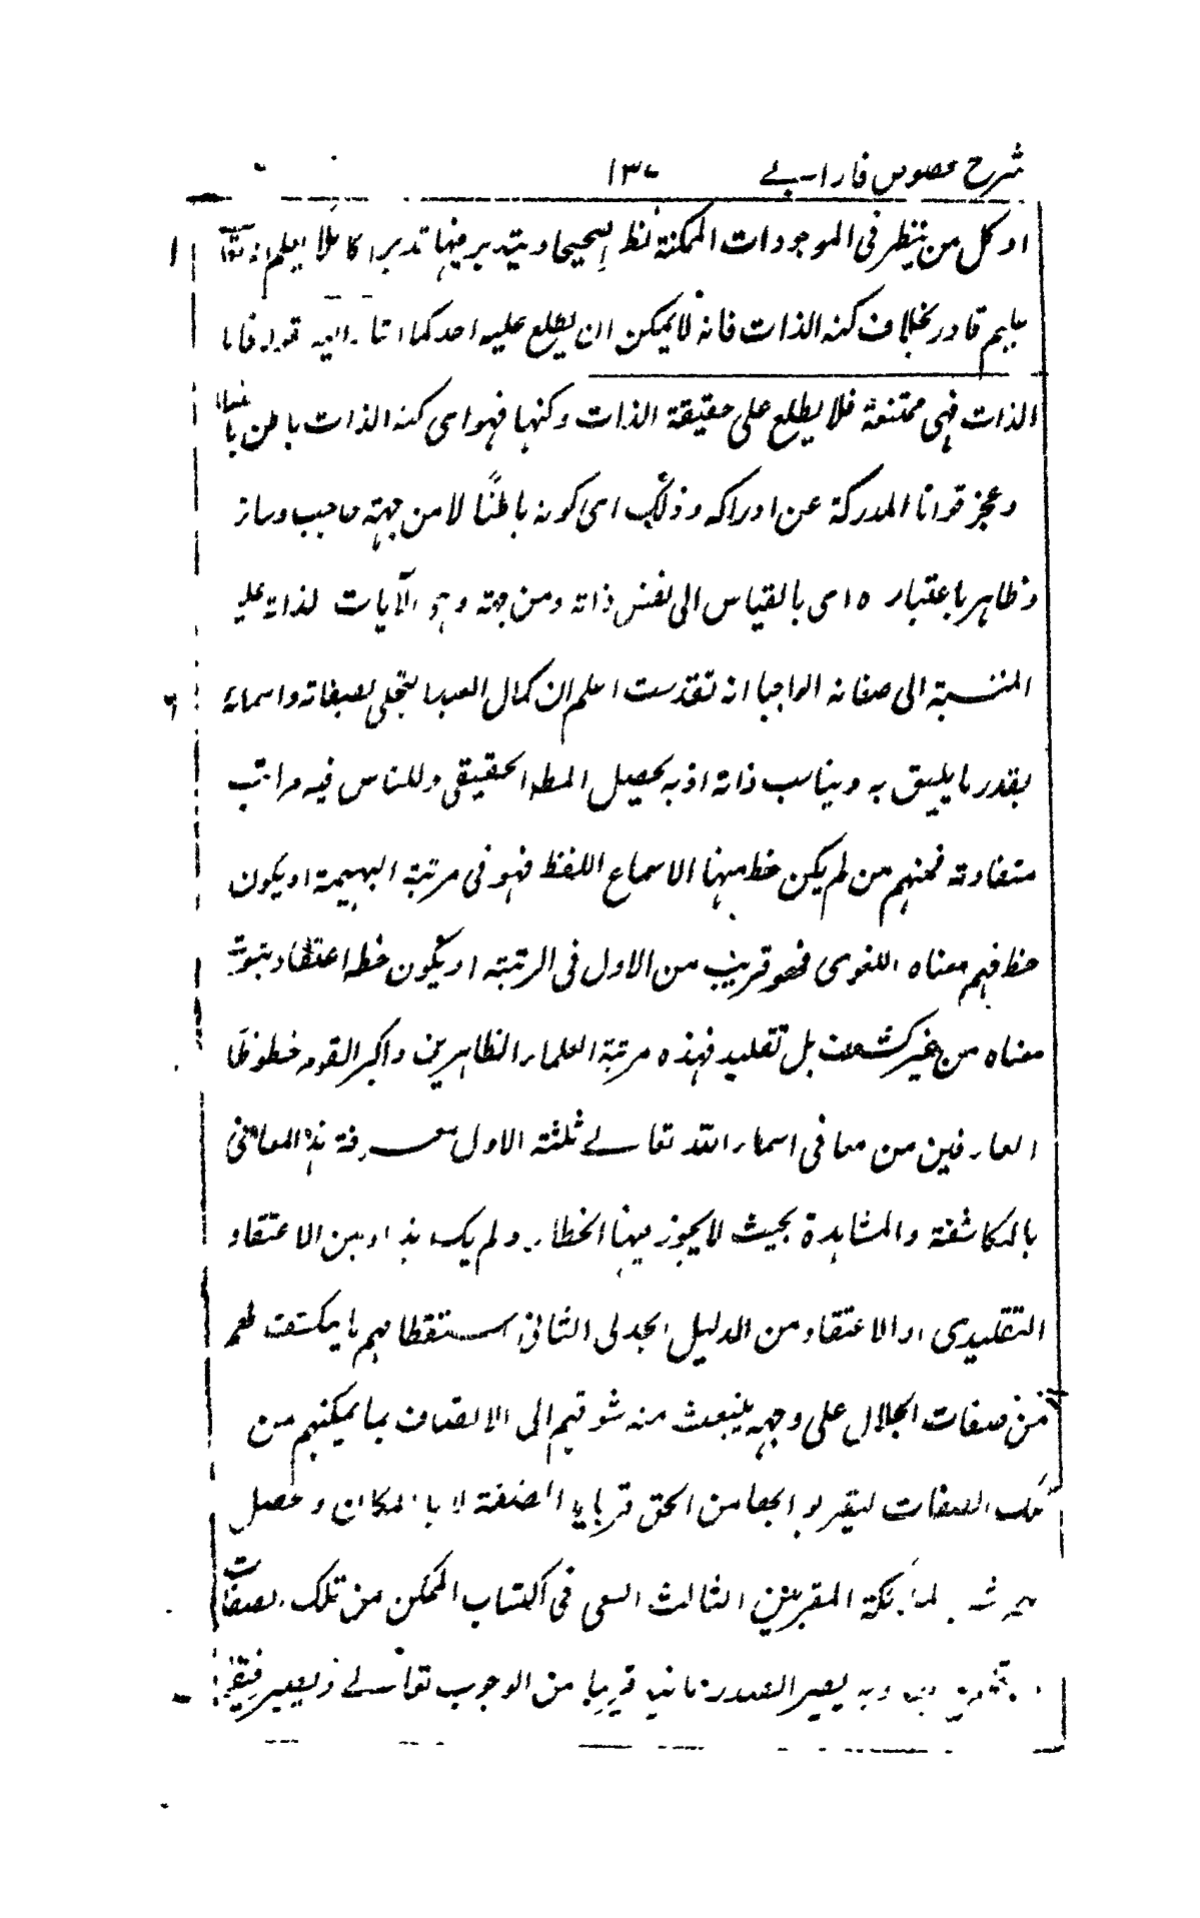 شرح فصوص فارابے ١٣٠
اذ كل من ينظر فى الموجودات الممكنة نظر اصحيحا ويتدبر فيها تدبرا كاملا يعلم انه تعالى
عليم قادر بخلاف كنه الذات فانه لا يمكن ان يطلع عليه احد كما اشار اليه قوله فاما
الذات فهى ممتنعة فلا يطلع على حقيقة الذات وكنهها فهو اى كنه الذات باطن با
وعجز قوانا المدركة عن ادراكه وذلك اى كونه باطنًا لا من جهته حاجب وساتر
وظاهر باعتباره اى بالقياس الى نفس ذاته ومن جهته وهو الآيات لذاته عليه
المنتسبة الى صفاته الواجبا انه تقدست اعلم ان كمال العبد التجلى بصفاته واسمائه
بقدر ما يليق به ويناسب ذاته اذ به يحصيل المط الحقيقى وللناس فيه مراتب
متفاوتة فمنهم من لم يكن حظ منها الا سماع اللفظ فهو فى مرتبة البهيمة او يكون
حظ فهم معناه اللغوى فهو قريب من الاول فى الرتبة او يكون حظه اعتقاد بثبوت
معناه من غير كشف بل تقليد فهذه مرتبة العلماء الظاهرين واكبر القوم حظوظا
العارفين من معانى اسماء الله تعالے ثلثة الاول معرفة هذه المعانى
بالمكاشفة والمشاهدة بحيث لا يجوز فيها الخطاء ولم يك هذا و بين الاعتقاد
التقليدى او الاعتقاد من الدليل الجدلى الثانى استقطامهم ما يكشف لهم
من صفات الجلال على وجهه ينبعث منه شوقهم الى الاتصاف بما يمكنهم من
تلك الصفات ليقربو ابها من الحق قربا بالصفة لا بالمكان و حصل
الملائكة المقربين الثالث السعى فى اكتساب الممكن من تلك الصفات
وبه يصير العبد ربانيا قريبا من الوجوب تعالے ويصير رفيقا